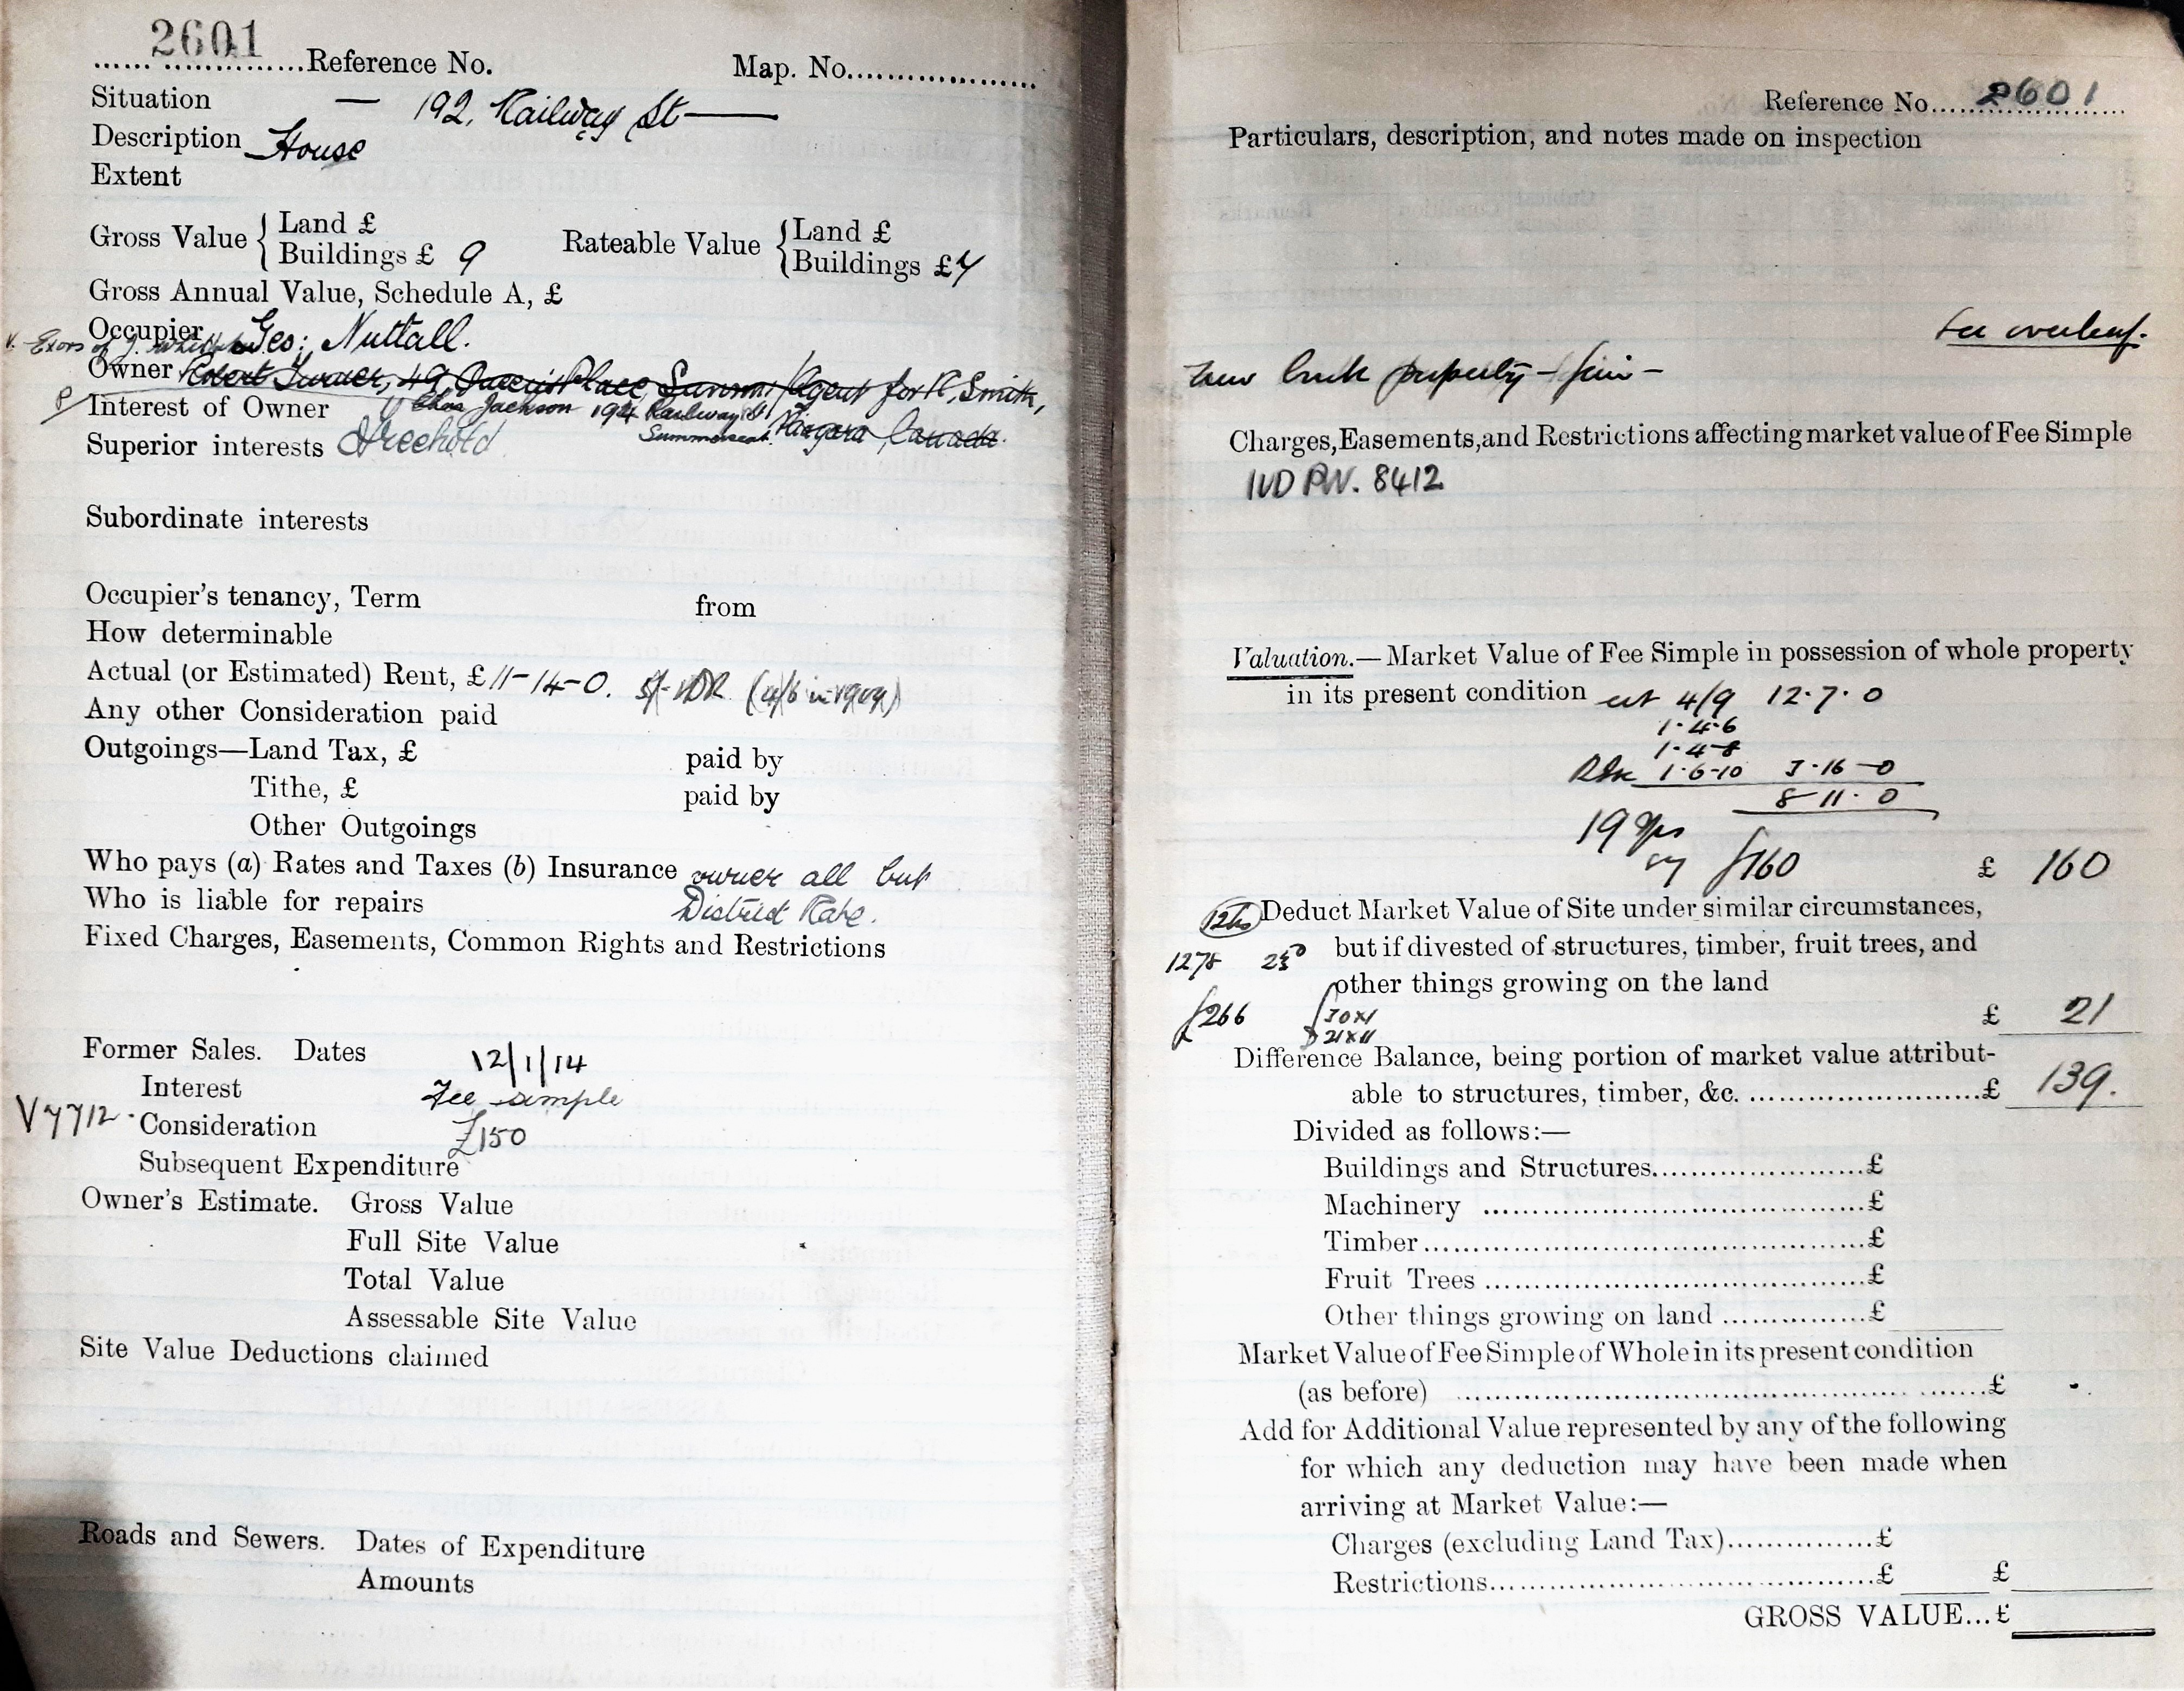 2601
Reference No. Map. No.
Situation — 192, Railway St —
Description House
Extent
Gross Value { Land £
Buildings £ 9
Rateable Value { Land £
Buildings £ 7
Gross Annual Value, Schedule A, £
Occupier Geo: Nuttall.
V. Exors of J.
Owner Robert Turner, 49, Queen's Place, Summ. / Agent for R. Smith,
Niagara, Canada.
Interest of Owner Chas Jackson 194 Railway St
Summerseat.
Superior interests Freehold
Subordinate interests
Occupier's tenancy, Term from
How determinable
Actual (or Estimated) Rent, £ 11-14-0. 5/- (4/6 in 1909)
Any other Consideration paid
Outgoings—Land Tax, £ paid by
Tithe, £ paid by
Other Outgoings
Who pays (a) Rates and Taxes (b) Insurance owner all but
Who is liable for repairs District Rate.
Fixed Charges, Easements, Common Rights and Restrictions
Former Sales. Dates 12/1/14
Interest Fee simple
V7712 Consideration £150
Subsequent Expenditure
Owner's Estimate. Gross Value
Full Site Value
Total Value
Assessable Site Value
Site Value Deductions claimed
Roads and Sewers. Dates of Expenditure
Amounts
Reference No. 2601
Particulars, description, and notes made on inspection
See overleaf.
brick property – fair –
Charges, Easements, and Restrictions affecting market value of Fee Simple
IVD PN. 8412
Valuation.—Market Value of Fee Simple in possession of whole property
in its present condition at 4/9 12.7.0
1.4.6
1.4.8
1.6.10 3.16-0
8-11.0
19 yrs
say £160 £ 160
Deduct Market Value of Site under similar circumstances,
but if divested of structures, timber, fruit trees, and
1278
other things growing on the land
£266 30x1
21x11
£ 21
Difference Balance, being portion of market value attribut-
able to structures, timber, &c. £ 139.
Divided as follows:—
Buildings and Structures £
Machinery £
Timber £
Fruit Trees £
Other things growing on land £
Market Value of Fee Simple of Whole in its present condition
(as before) £
Add for Additional Value represented by any of the following
for which any deduction may have been made when
arriving at Market Value:—
Charges (excluding Land Tax) £
Restrictions £ £
GROSS VALUE... £